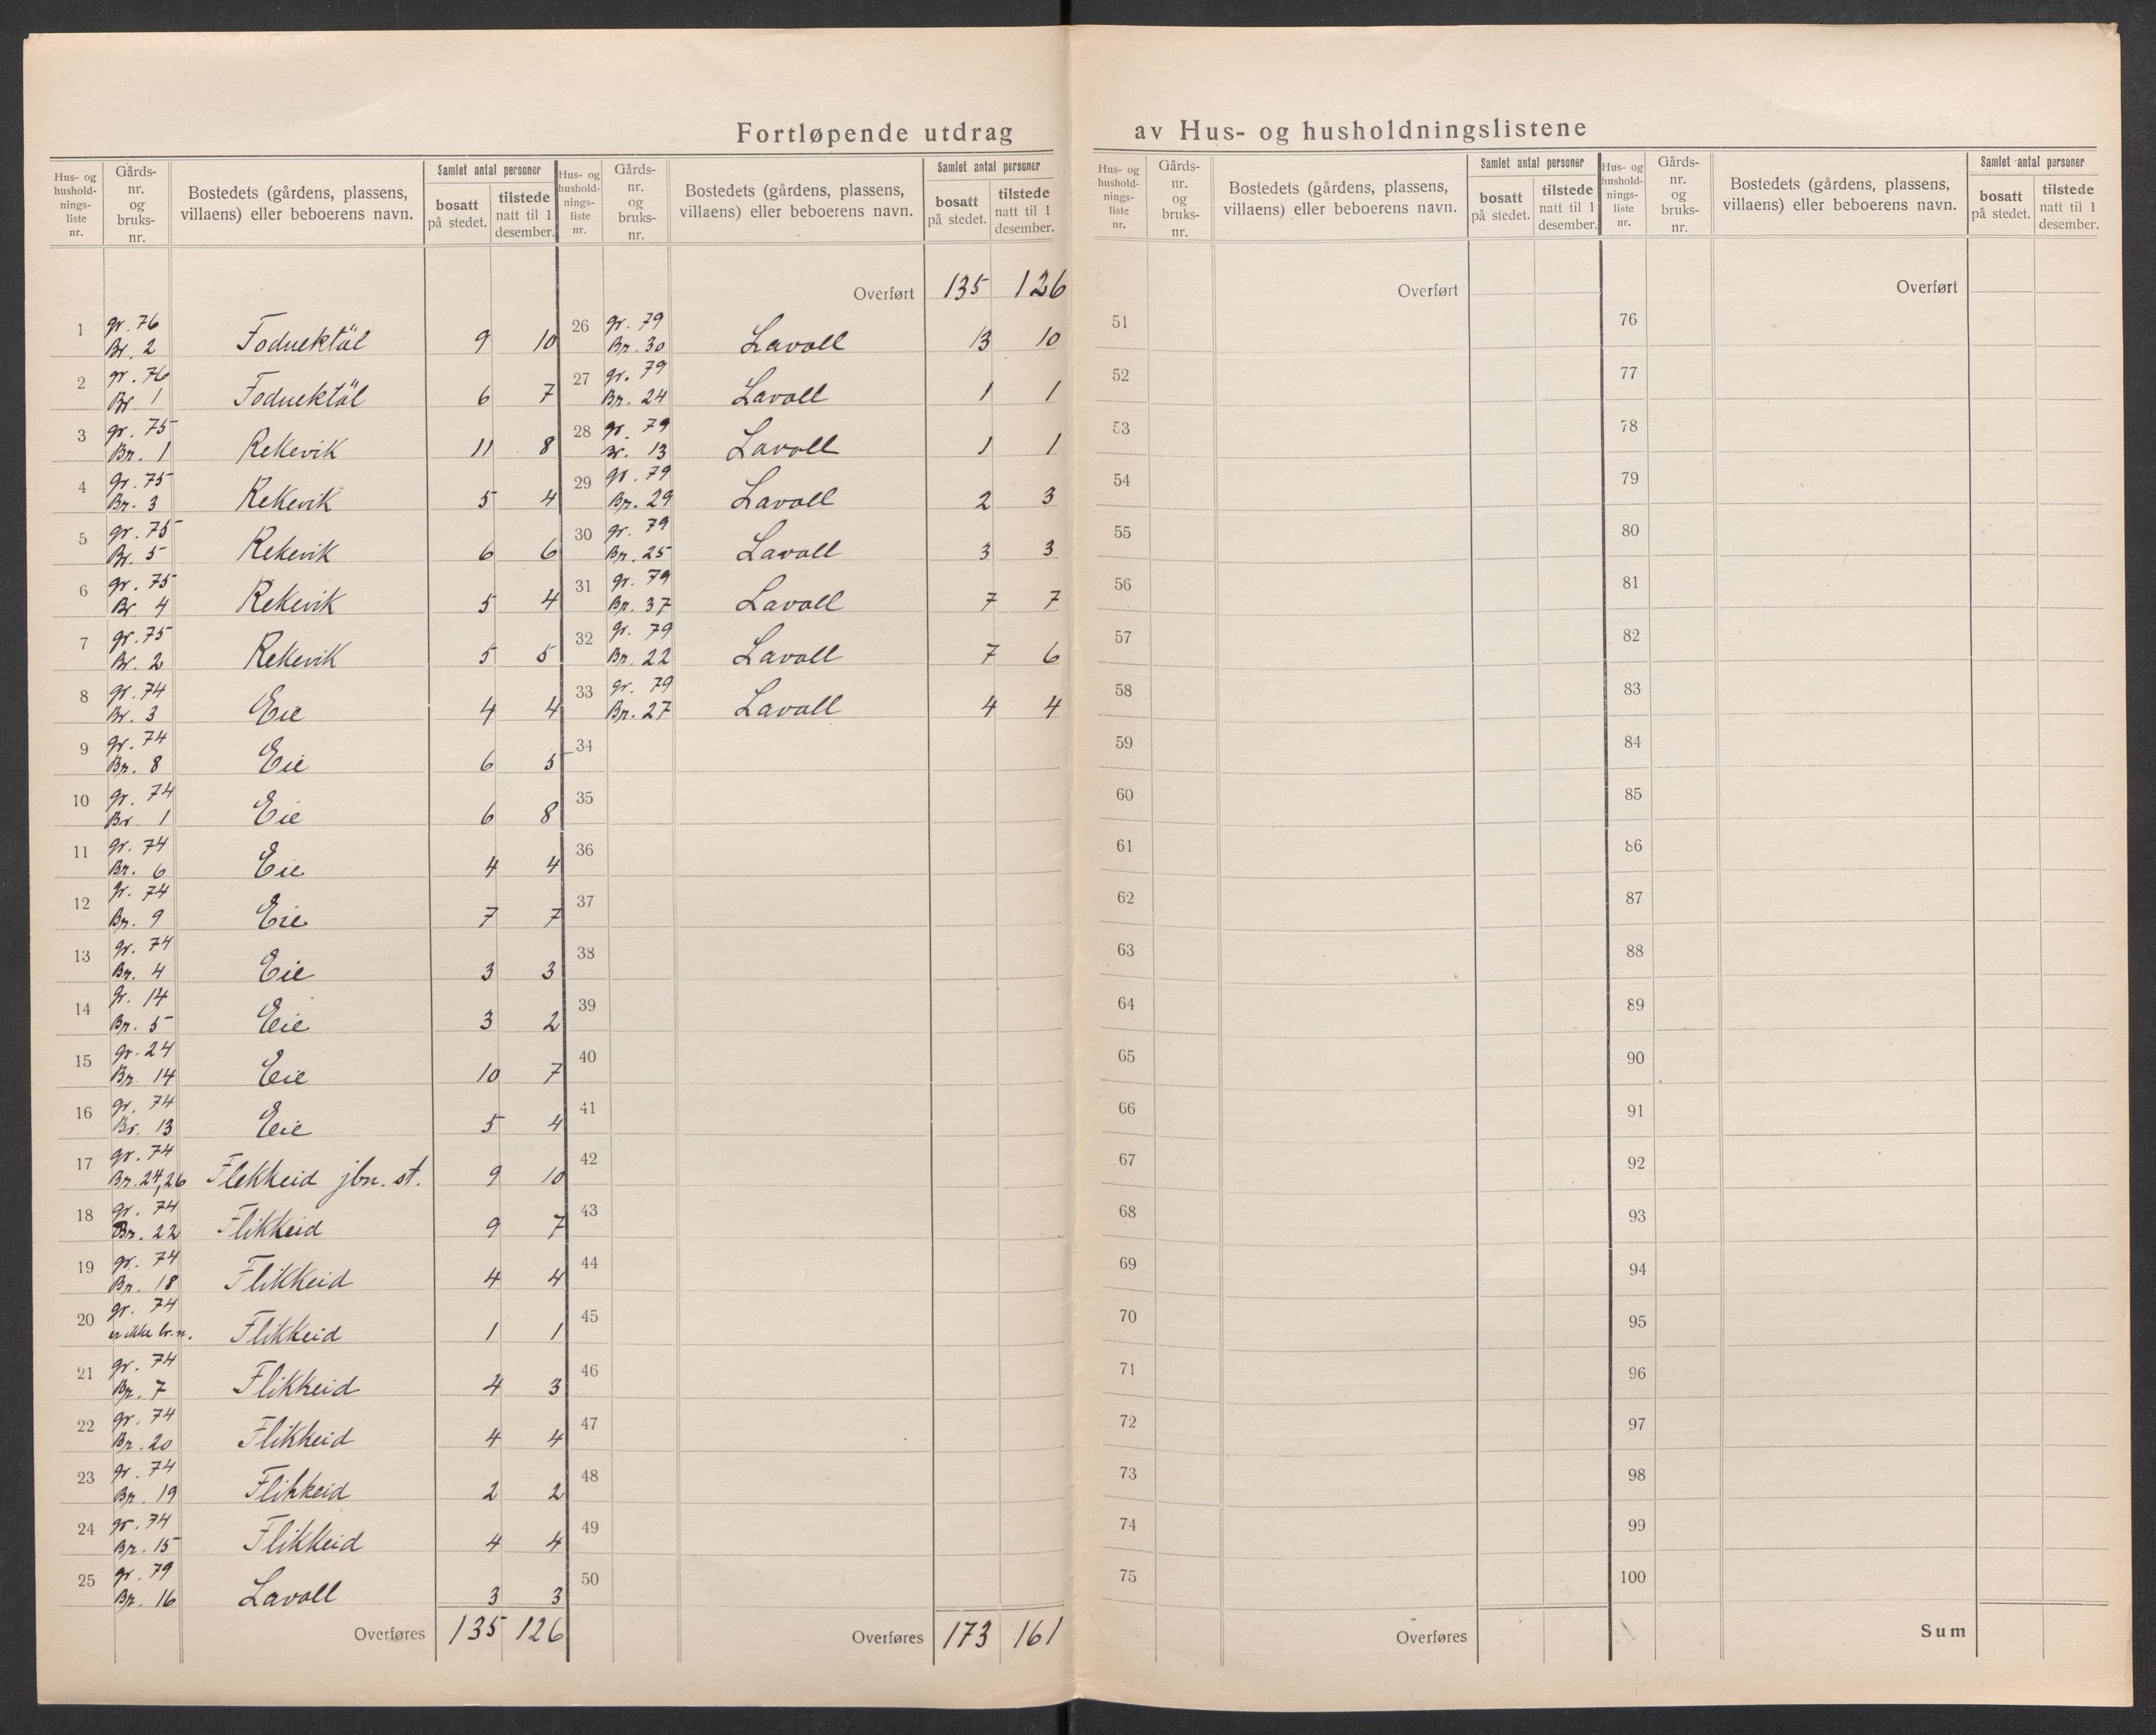 Fortløpende utdrag av Hus- og husholdningslistene
Hus- og husholdnings- liste nr. | Gårds- nr. og bruks- nr. | Bostedets (gårdens, plassens, villaens) eller beboerens navn. | Samlet antal personer | bosatt på stedet. | tilstede natt til 1 desember.
1 gr. 76 Br. 2 Fodnektål 9 10
2 gr. 76 Br. 1 Fodnektål 6 7
3 gr. 75 Br. 1 Rekevik 11 8
4 gr. 75 Br. 3 Rekevik 5 4
5 gr. 75 Br. 5 Rekevik 6 6
6 gr. 75 Br 4 Rekevik 5 4
7 gr. 75 Br. 2 Rekevik 5 5
8 gr. 74 Br. 3 Eie 4 4
9 gr. 74 Br. 8 Eie 6 5
10 gr. 74 Br 1 Eie 6 8
11 gr. 74 Br. 6 Eie 4 4
12 gr. 74 Br. 9 Eie 7 7
13 gr. 74 Br. 4 Eie 3 3
14 gr. 14 Br. 5 Eie 3 2
15 gr. 24 Br 14 Eie 10 7
16 gr. 74 Br. 13 Eie 5 4
17 gr. 74 Br. 24, 26 Flekkeid jbn. st. 9 10
18 gr. 74 Br. 22 Flikkeid 9 7
19 gr. 74 Br. 18 Flikkeid 4 4
20 gr. 74 er ikke br.n. Flikkeid 1 1
21 gr. 74 Br. 7 Flikkeid 4 3
22 gr. 74 Br. 20 Flikkeid 4 4
23 gr. 74 Br. 19 Flikkeid 2 2
24 gr. 74 Br. 15 Flikkeid 4 4
25 gr. 79 Br. 16 Lavoll 3 3
Overføres 135 126
Hus- og husholdnings- liste nr. | Gårds- nr. og bruks- nr. | Bostedets (gårdens, plassens, villaens) eller beboerens navn. | Samlet antal personer | bosatt på stedet. | tilstede natt til 1 desember.
Overført 135 126
26 gr. 79 Br. 30 Lavoll 13 10
27 gr. 79 Br. 24 Lavoll 1 1
28 gr. 79 Br. 13 Lavoll 1 1
29 gr. 79 Br. 29 Lavoll 2 3
30 gr. 79 Br. 25 Lavoll 3 3
31 gr. 79 Br. 37 Lavoll 7 7
32 gr. 79 Br. 22 Lavoll 7 6
33 gr. 79 Br. 27 Lavoll 4 4
34
35
36
37
38
39
40
41
42
43
44
45
46
47
48
49
50
Overføres 173 161
Hus- og husholdnings- liste nr. | Gårds- nr. og bruks- nr. | Bostedets (gårdens, plassens, villaens) eller beboerens navn. | Samlet antal personer | bosatt på stedet. | tilstede natt til 1 desember.
Overført
51
52
53
54
55
56
57
58
59
60
61
62
63
64
65
66
67
68
69
70
71
72
73
74
75
Overføres
Hus- og husholdnings- liste nr. | Gårds- nr. og bruks- nr. | Bostedets (gårdens, plassens, villaens) eller beboerens navn. | Samlet antal personer | bosatt på stedet. | tilstede natt til 1 desember.
Overført
76
77
78
79
80
81
82
83
84
85
86
87
88
89
90
91
92
93
94
95
96
97
98
99
100
Sum